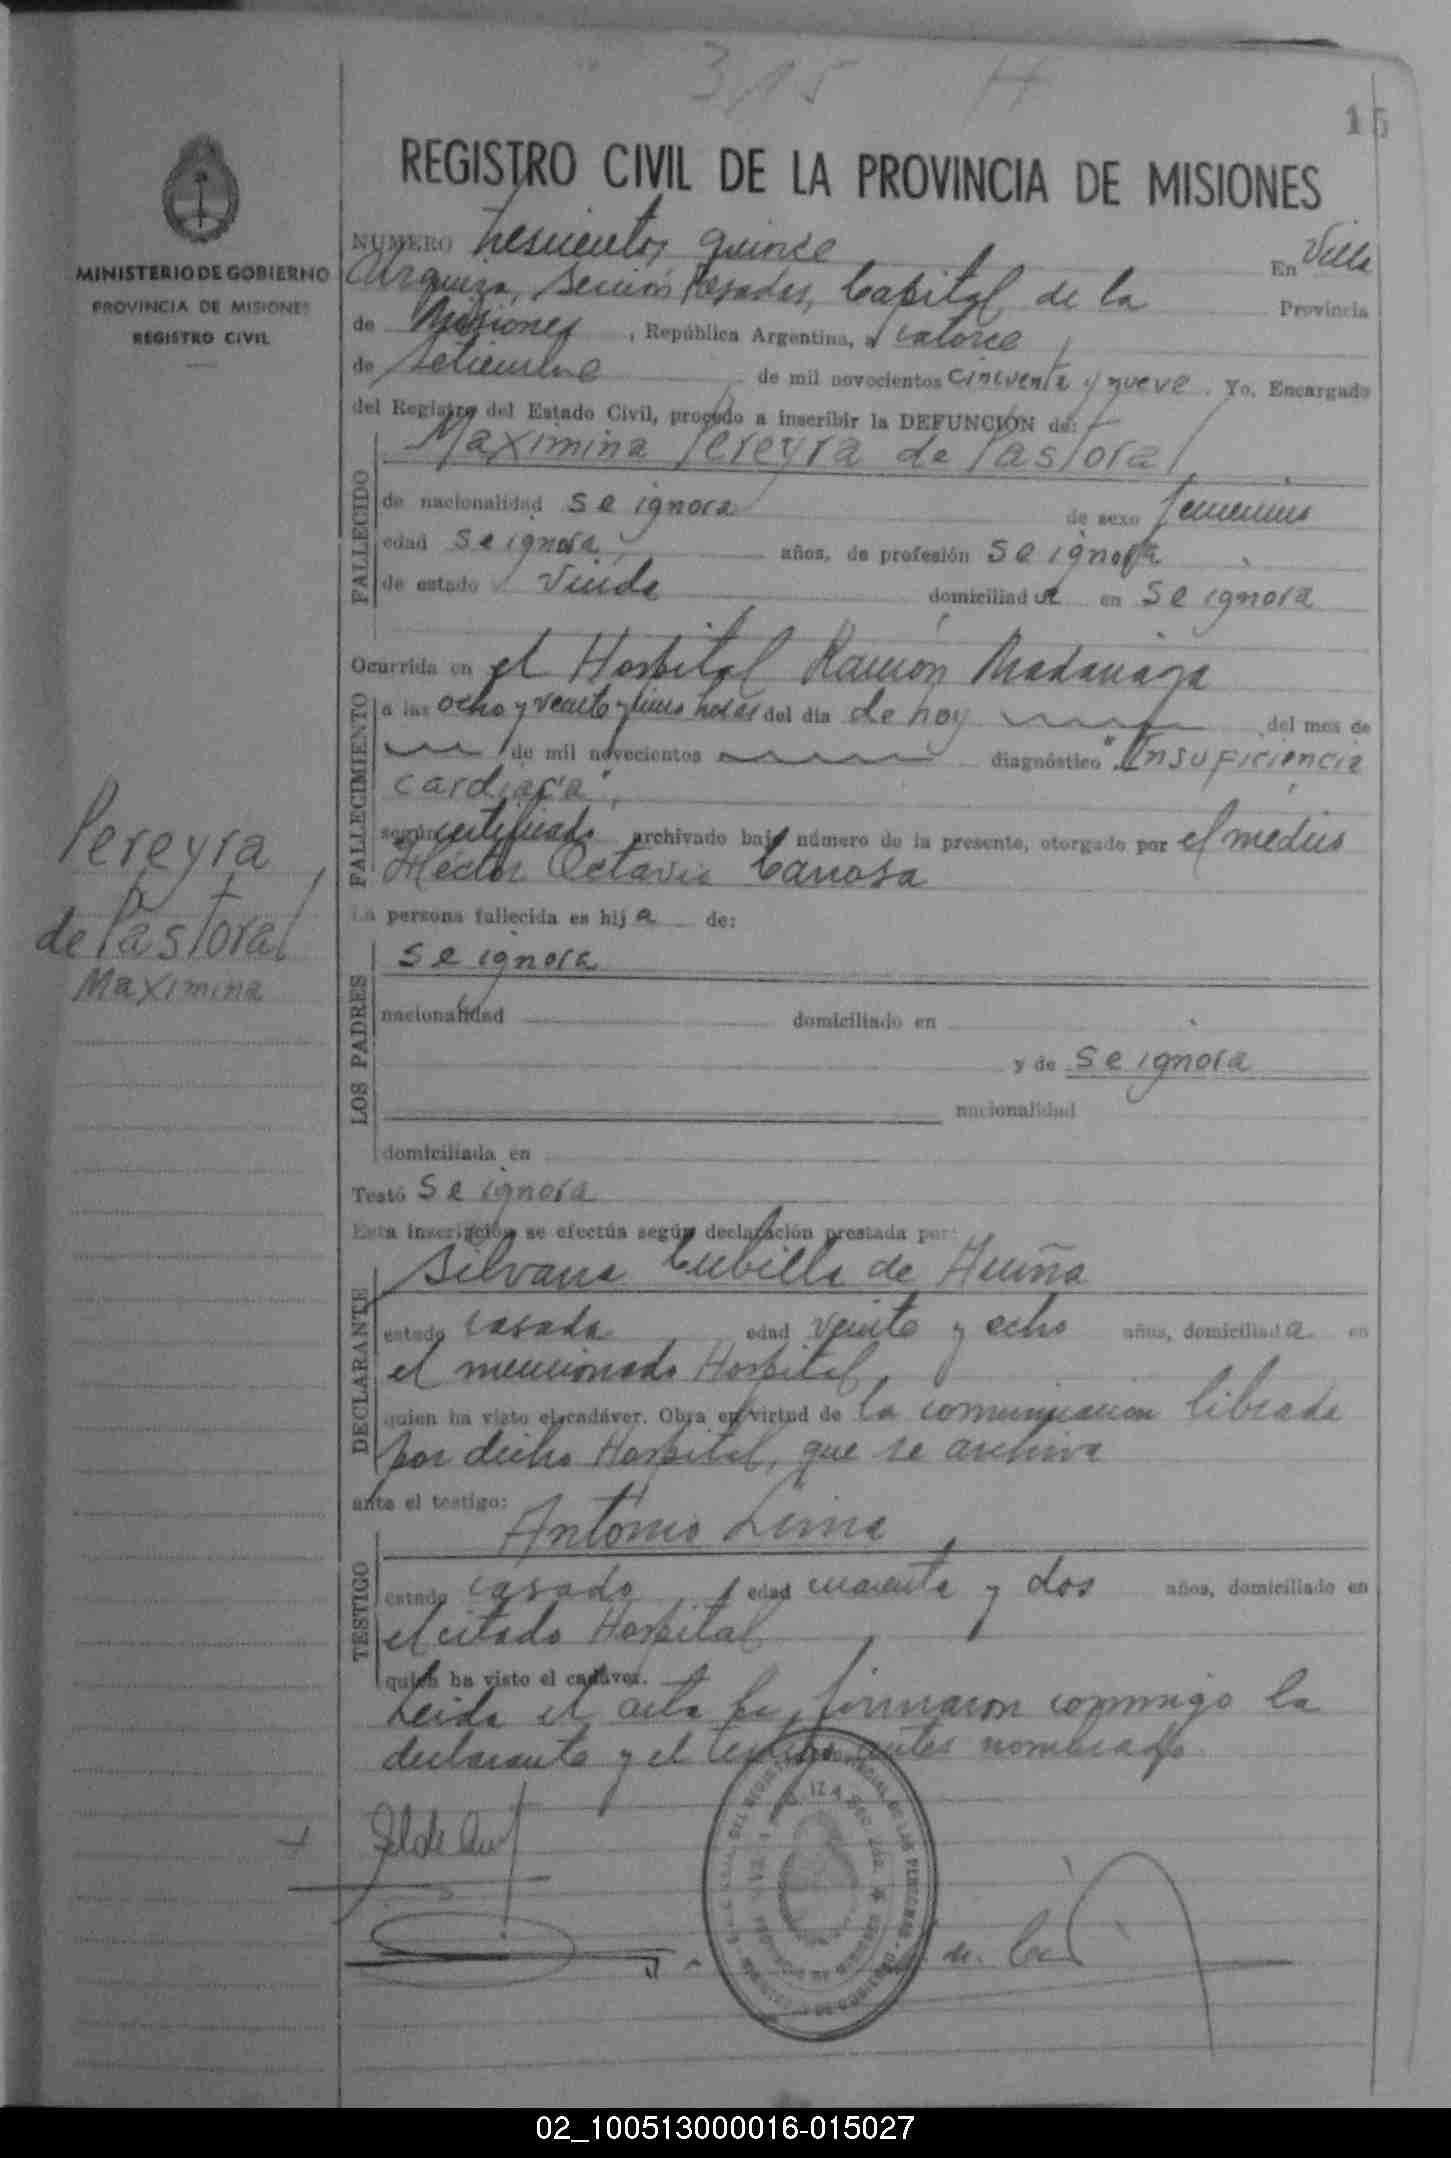 315
15
REGISTRO CIVIL DE LA PROVINCIA DE MISIONES
MINISTERIO DE GOBIERNO
PROVINCIA DE MISIONES
REGISTRO CIVIL
NUMERO trescientos quince En Villa
Urquiza, sección Posadas, Capital de la Provincia
de Misiones, República Argentina, a catorce
de setiembre de mil novecientos cincuenta y nueve. Yo, Encargado
del Registro del Estado Civil, procedo a inscribir la DEFUNCION de:
Maximina Pereyra de Pastoral
FALLECIDO
de nacionalidad se ignora de sexo femenino
edad se ignora años, de profesión se ignora
de estado Viuda domiciliada en se ignora
Ocurrida en el Hospital Ramón Madariaga
FALLECIMIENTO
a las ocho y veinte y cinco horas del día de hoy del mes de
de mil novecientos diagnóstico "Insuficiencia
cardiaca",
según certificado archivado bajo número de la presente, otorgado por el médico
Héctor Octavio Canosa
La persona fallecida es hija de:
LOS PADRES
se ignora
nacionalidad domiciliado en
y de se ignora
nacionalidad
domiciliada en
Testó se ignora
Esta inscripción se efectúa según declaración prestada por:
DECLARANTE
Silvana Cubilla de Acuña
estado casada edad veinte y ocho años, domiciliada en
el mencionado Hospital
quien ha visto el cadáver. Obra en virtud de la comunicación librada
por dicho Hospital, que se archiva
ante el testigo:
TESTIGO
Antonio Lima
estado casado edad cuarenta y dos años, domiciliado en
el citado Hospital
quien ha visto el cadáver.
Leida el acta la firmaron conmigo la
declarante y el testigo antes nombrado.
Pereyra
de Pastoral
Maximina
02_100513000016-015027